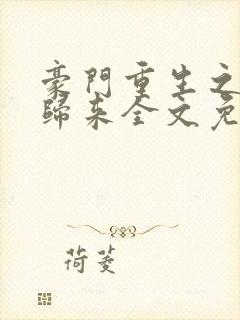 豪門重生之
歸来全文免
荷菱